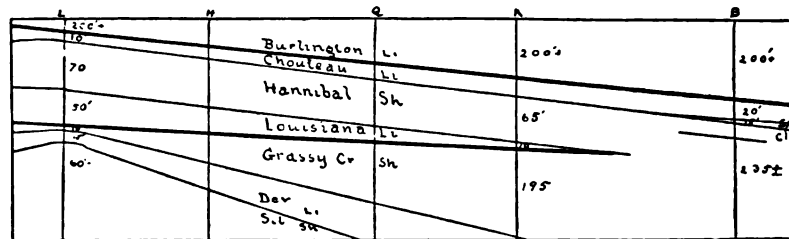 L H Q A B
200'+
10'
70
50'
60'-
Burlington Li
Chouteau Li
Hannibal Sh
Louisiana Li
Grassy Cr Sh
Dev Li
Sil Sh
200'+
65'
195
200'+
20'
15'
235±